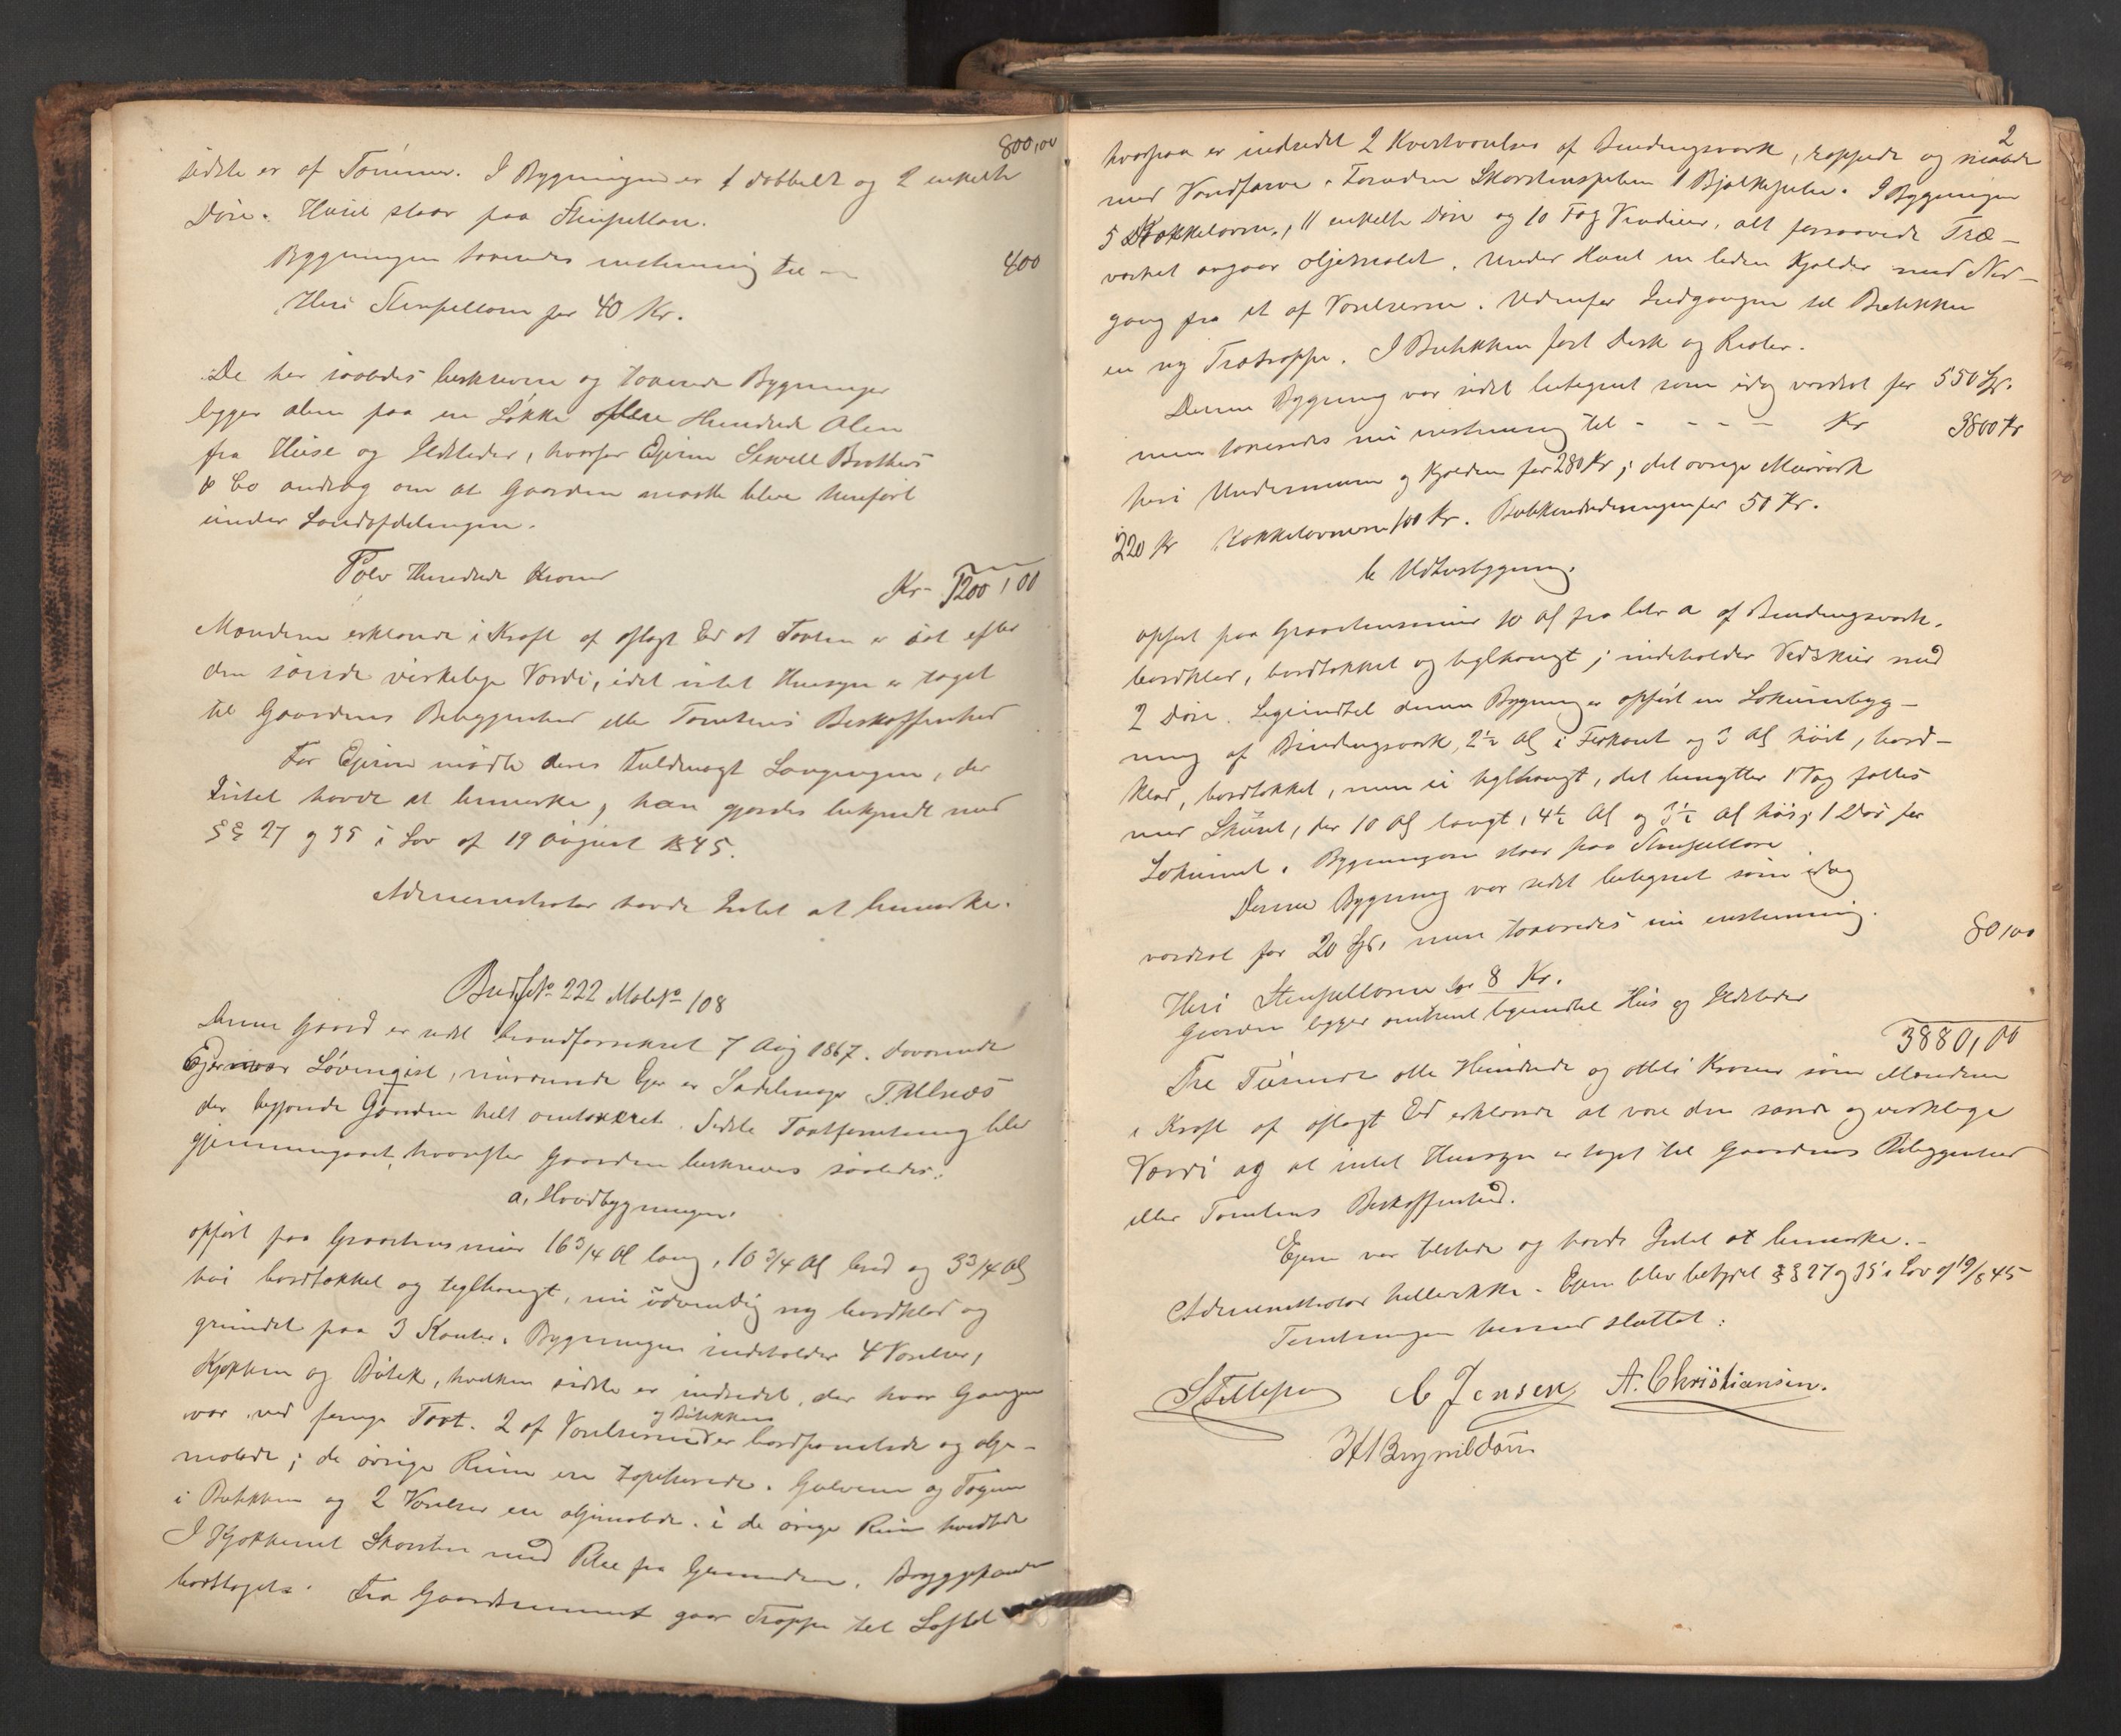 800,00
sidste er af Tømmer. I Bygningen er 1 dobbelt og 2 enkelte
Døre. Huset staar paa Stenpillare.
Bygningen taxeredes enstemmig til — 400
Heri Stenpillarne for 40 Kr.
De her saaledes beskrevne og taxerede Bygninger
ligger alene paa en Løkke flere Hundrede Alen
fra Huse og Ildsteder, hvorfor Ejerne Sewell Brothers
& Co androg om at Gaarden maatte blive henført
under Landafdelingen.
Tolv Hundrede Kroner Kr. 1200,00
Mændene erklærede i Kraft af aflagt Ed at Taxten er sat efter
den sande virkelige Værdi, idet intet Hensyn er taget
til Gaardens Beliggenhed eller Tomtens Beskaffenhed
For Ejerne mødte deres Fuldmægt Langengen, der
Intet havde at bemærke, han gjordes bekjendt med
§§ 27 og 35 i Lov af 19 August 1845.
Administrator havde Intet at bemærke.
Brdf. No 222 Matr No 108
Denne Gaard er sidst brandforsikret 7 Aug 1867. daværende
Ejer var Løvenqist, nuværende Ejer er Sadelmager T. Ulnæs
der begjærede Gaarden helt omtaxeret. Sidste Taxtforretning blev
gjennemgaaet, hvorefter Gaarden beskreves saaledes:
a, Hovedbygningen.
opført paa Graastensmur 16 3/4 Al lang, 10 3/4 Al bred og 3 3/4 Al
høi bordtækket og teglhængt, nu udvendig ny bordklæd og
grundet paa 3 Kanter. Bygningen indeholder 4 Værelser,
Kjøkken og Butik, hvilken sidste er indredet, der hvor Gangen
var ved forrige Taxt. 2 af Værelserne og Butikken er bordpanelede og olje-
malede; de øvrige Rum ere tapetserede. Gulvene og Tagene
i Butikken og 2 Værelser ere oljemalede. i de øvrige Rum hvidtede
I Kjøkkenet Skorsten med Pibe fra Grunden. Bryggepanden
borttaget. Fra Gaardsrummet gaar Trappe til Loftet
2
hvorpaa er indredet 2 Kvistværelser af Bindingsværk, rappede og malede
med Vandfarve. Foruden Skorstenspiben 1 Bjælkepibe. I Bygningen
5 Kakkelovne, 11 enkelte Døre og 10 Fag Vinduer, alt forsaavidt Træ-
værket angaar oljemalet. Under Huset en liden Kjælder med Ned-
gang fra et af Værelserne. Udenfor Indgangen til Butikken
en ny Trætrappe. I Butikken fast Disk og Reoler.
Denne Bygning var sidst betegnet som idag vurderet for 550 Spd.
men taxeredes nu enstemmig til - - - - Kr 3800 Kr
heri Undermuren og Kjælderen for 280 Kr; det øvrige Murværk
220 Kr Kakkelovnene 100 Kr. Butikindredningen for 50 Kr.
b Udhusbygning.
opført paa Graastensmur 10 Al fra litr a af Bindingsværk,
bordklæd, bordtækket og teglhængt; indeholder Vedskur med
2 Døre. Ligeindtil denne Bygning er opført en Lokumsbyg-
ning af Bindingsværk, 2 1/2 Al i Firkant og 3 Al høit, bord-
klæd, bordtækket, men ei teglhængt, det benytter Væg fælles
med Skuret, der 10 Al langt, 4 1/2 Al og 3 1/2 Al høi; 1 Dør for
Lokumet. Bygningen staar paa Stenpillare
Denne Bygning var sidst betegnet som idag
vurderet for 20 Spd. men taxeredes nu enstemmig. 80,00
Heri Stenpillarne for 8 Kr.
Gaarden ligger omtrent ligeindtil Hus og Ildsteder
3880,00
Tre Tusinde otte Hundrede og otteti Kroner som Mændene
i Kraft af aflagt Ed erklærede at være den sande og virkelige
Værdi og at intet Hensyn er taget til Gaardens Beliggenhed
eller Tomtens Beskaffenhed.
Ejeren var tilstede og havde Intet at bemærke.-
Administrator hellerikke. Ejeren blev betydet §§ 27 og 35 i Lov af 19/8 45
Forretningen hermed sluttet:
C Jensen A. Christiansen.
H Brynildsen